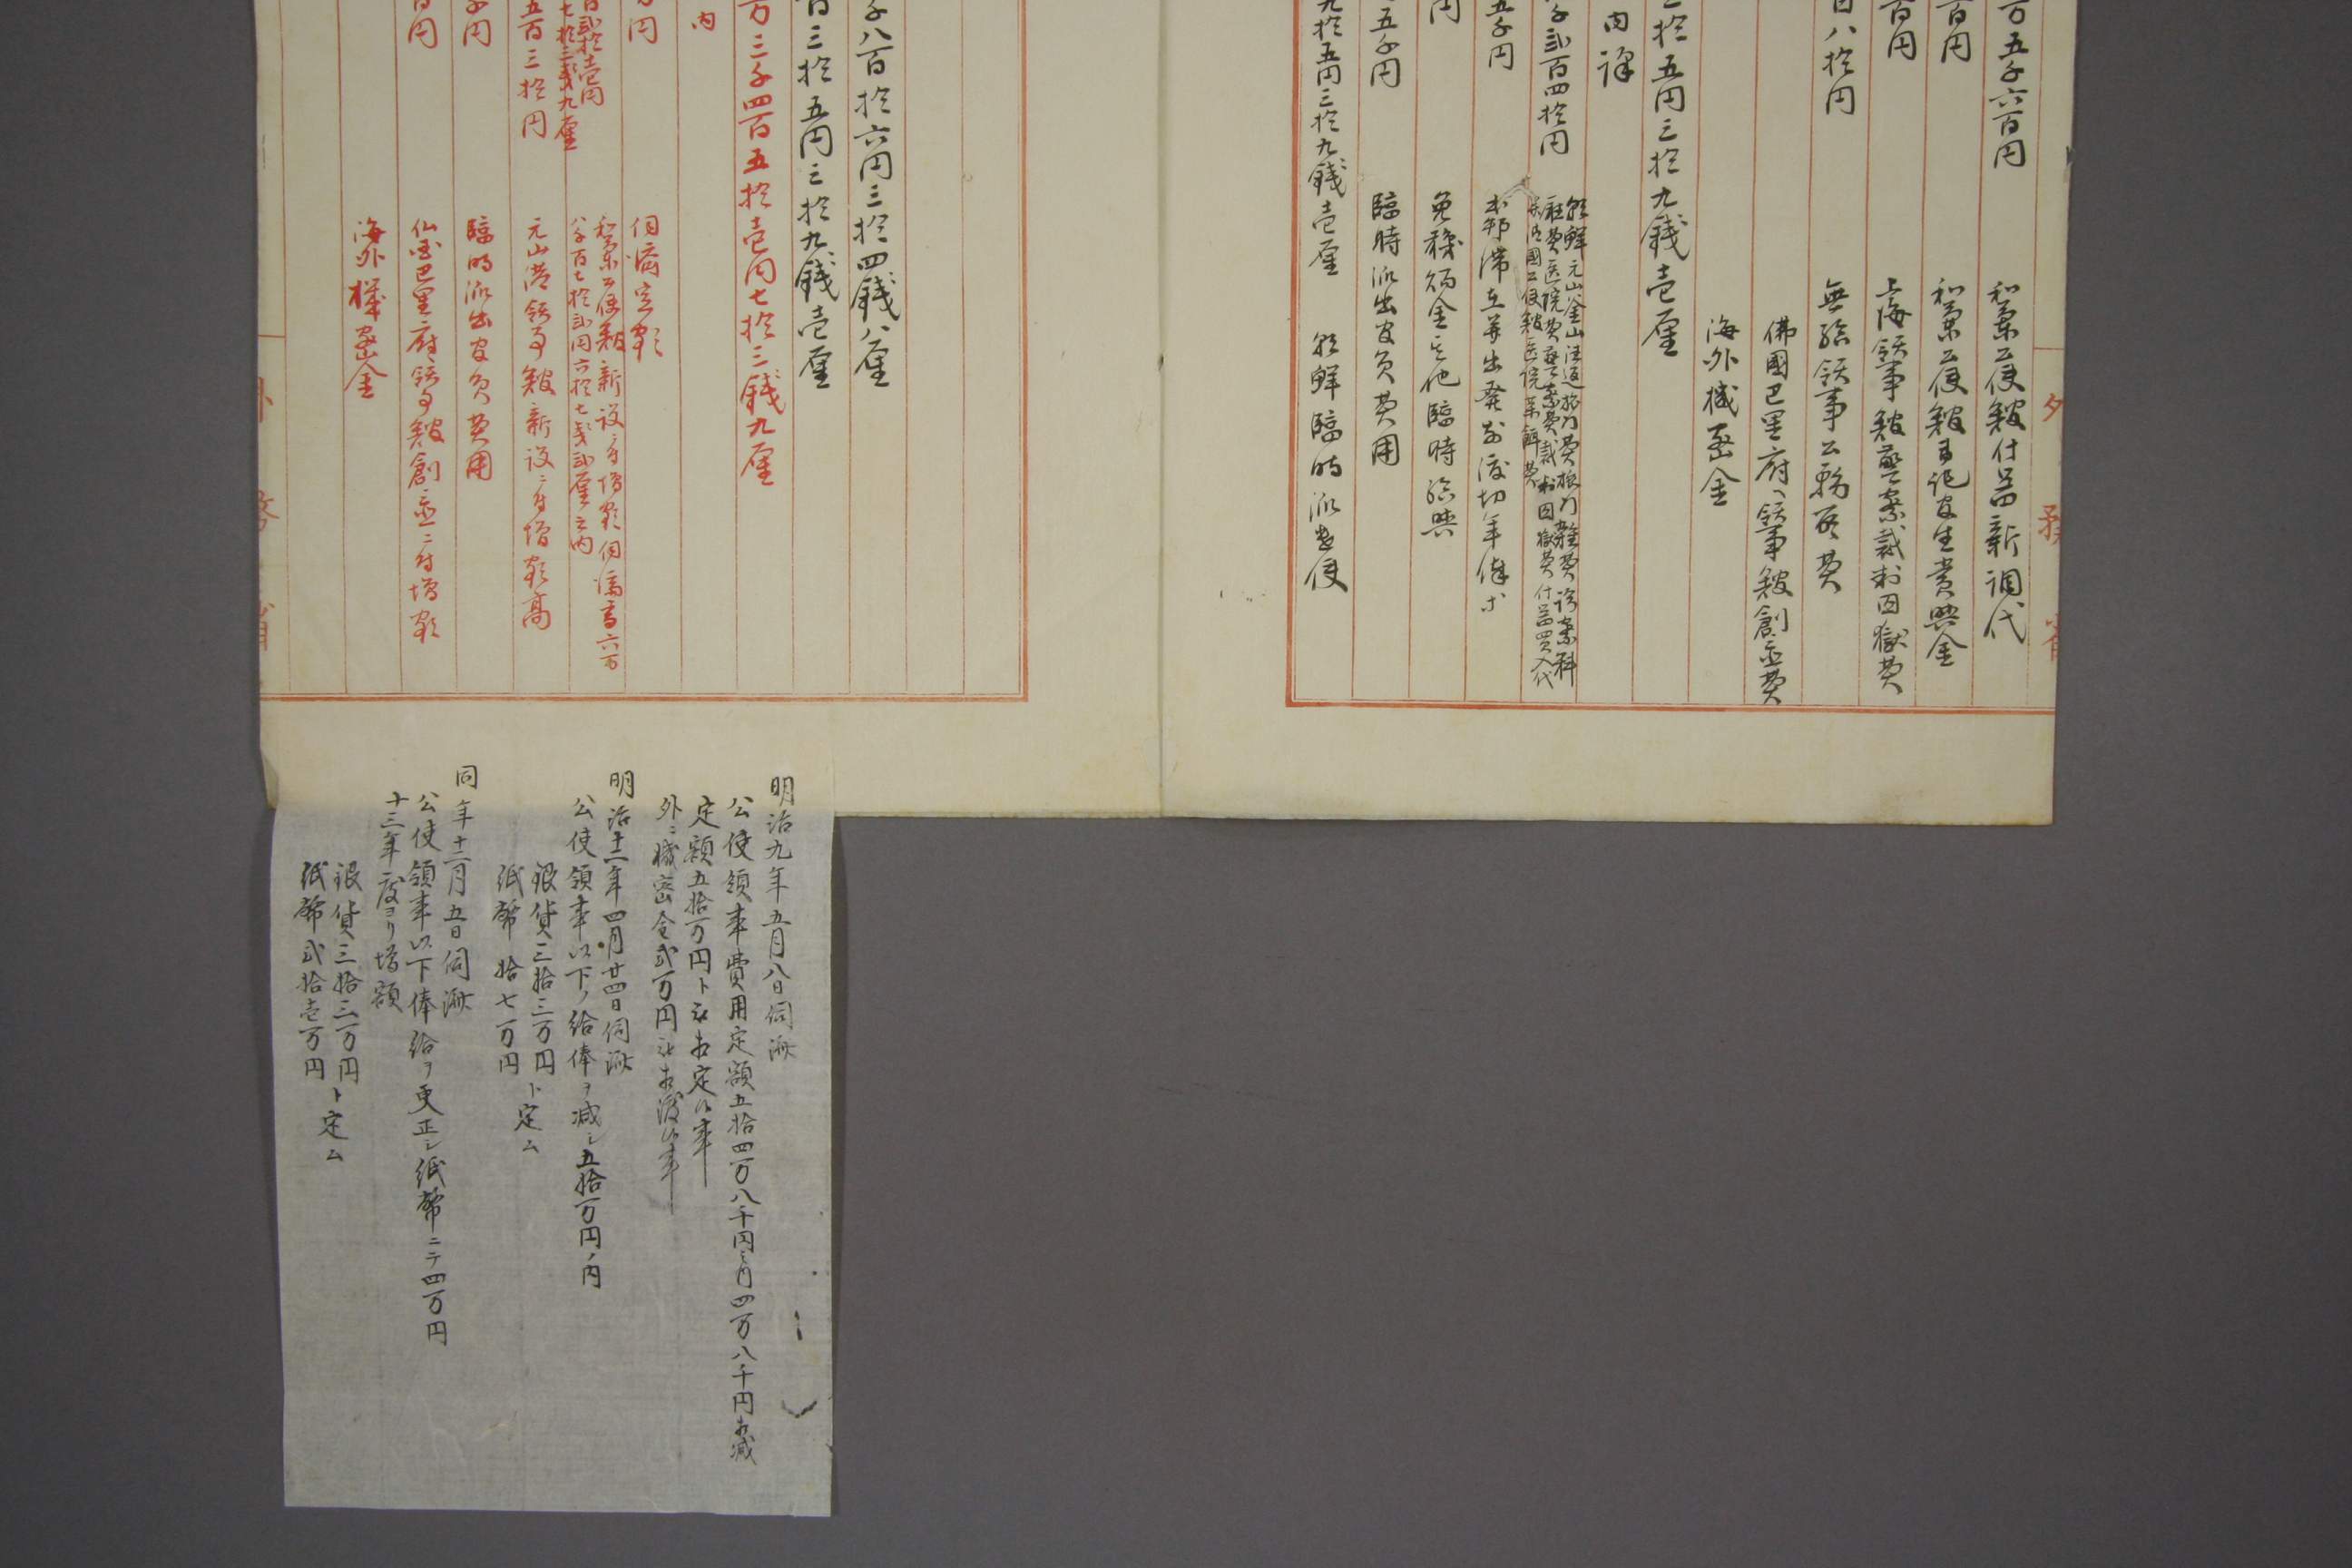 万五千六百円 和蘭公使館什器新調代
百円 和蘭公使館書記官生賞與金
百円 上海領事館警察裁判囚獄費
百八拾円 無給領事公務所費
佛國巴里府ヘ領事館創立費
海外機密金
三拾五円三拾九錢壱厘
内譯
千弐百四拾円 朝鮮元山釜山津
五千円 本邦滞在并出発前後切年俸等
円 免職賜金其他臨時給與
五千円 臨時派出官員費用
九拾五円三拾九錢壱厘 朝鮮臨時派出使
千八百拾六円三拾四錢八厘
百三拾五円三拾九錢壱厘
万三千四百五拾壱円七拾三錢九厘
内
万円 伺済定額
百弐拾壱円七拾三錢九厘 和蘭公使館新設ニ付増額伺済高六万八千百七拾弐円六拾七錢弐厘之内
五百三拾円 元山港領事館新設ニ付増額高
千円 臨時派出官員費用
百円 仏国巴里府ヘ領事館創立ニ付増額
海外機密金
外務省
明治九年五月八日伺濟
公使領事費用定額五拾四万八千円之内四万八千円相減
定額五拾万円ト被相定候事
外ニ機密金弐万円被相渡候事
明治十二年四月廿四日伺濟
公使領事以下ノ給俸ヲ減シ五拾万円ノ内
銀貨三拾三万円
紙幣拾七万円
ト定ム
同年十二月五日伺濟
公使領事以下俸給ヲ更正シ紙幣ニテ四万円
十三年度ヨリ増額
銀貨三拾三万円
紙幣弐拾壱万円
ト定ム